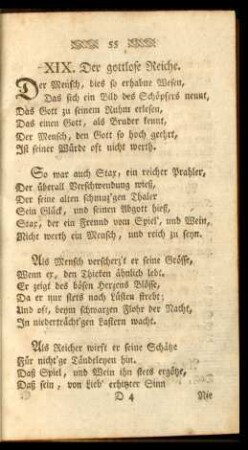 55
XIX. Der gottlose Reiche.
Der Mensch, dies so erhabne Wesen,
Das sich ein Bild des Schöpfers nennt,
Das Gott zu seinem Ruhm erlesen,
Das einen Gott, als Bruder kennt,
Der Mensch, den Gott so hoch geehrt,
Ist seiner Würde oft nicht werth.
So war auch Stax, ein reicher Prahler,
Der überall Verschwendung wieß,
Der seine alten schmuz'gen Thaler
Sein Glück, und seinen Abgott hieß,
Stax, der ein Freund vom Spiel, und Wein,
Nicht werth ein Mensch, und reich zu seyn.
Als Mensch verscherz't er seine Grösse,
Wenn er, den Thieren ähnlich lebt.
Er zeigt des bösen Herzens Blösse,
Da er nur stets nach Lüsten strebt;
Und oft, beym schwarzen Flohr der Nacht,
In niederträcht'gen Lastern wacht.
Als Reicher wirft er seine Schätze
Für nicht'ge Tändeleyen hin.
Daß Spiel, und Wein ihn stets ergötze,
Daß sein, von Lieb' erhitzter Sinn
D 4 Nie